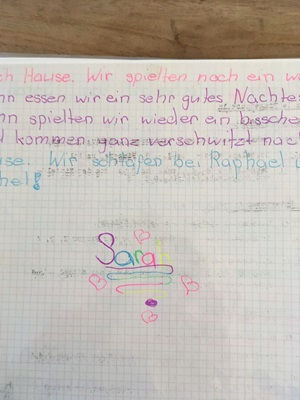 ch Hause. Wir spielten noch ein w
nn essen wir ein sehr gutes Nachtes
nn spielten wir wieder ein bissche
d kommen ganz verschwitzt nac
use. Wir schlafen bei Raphael i
chel!
Sarai